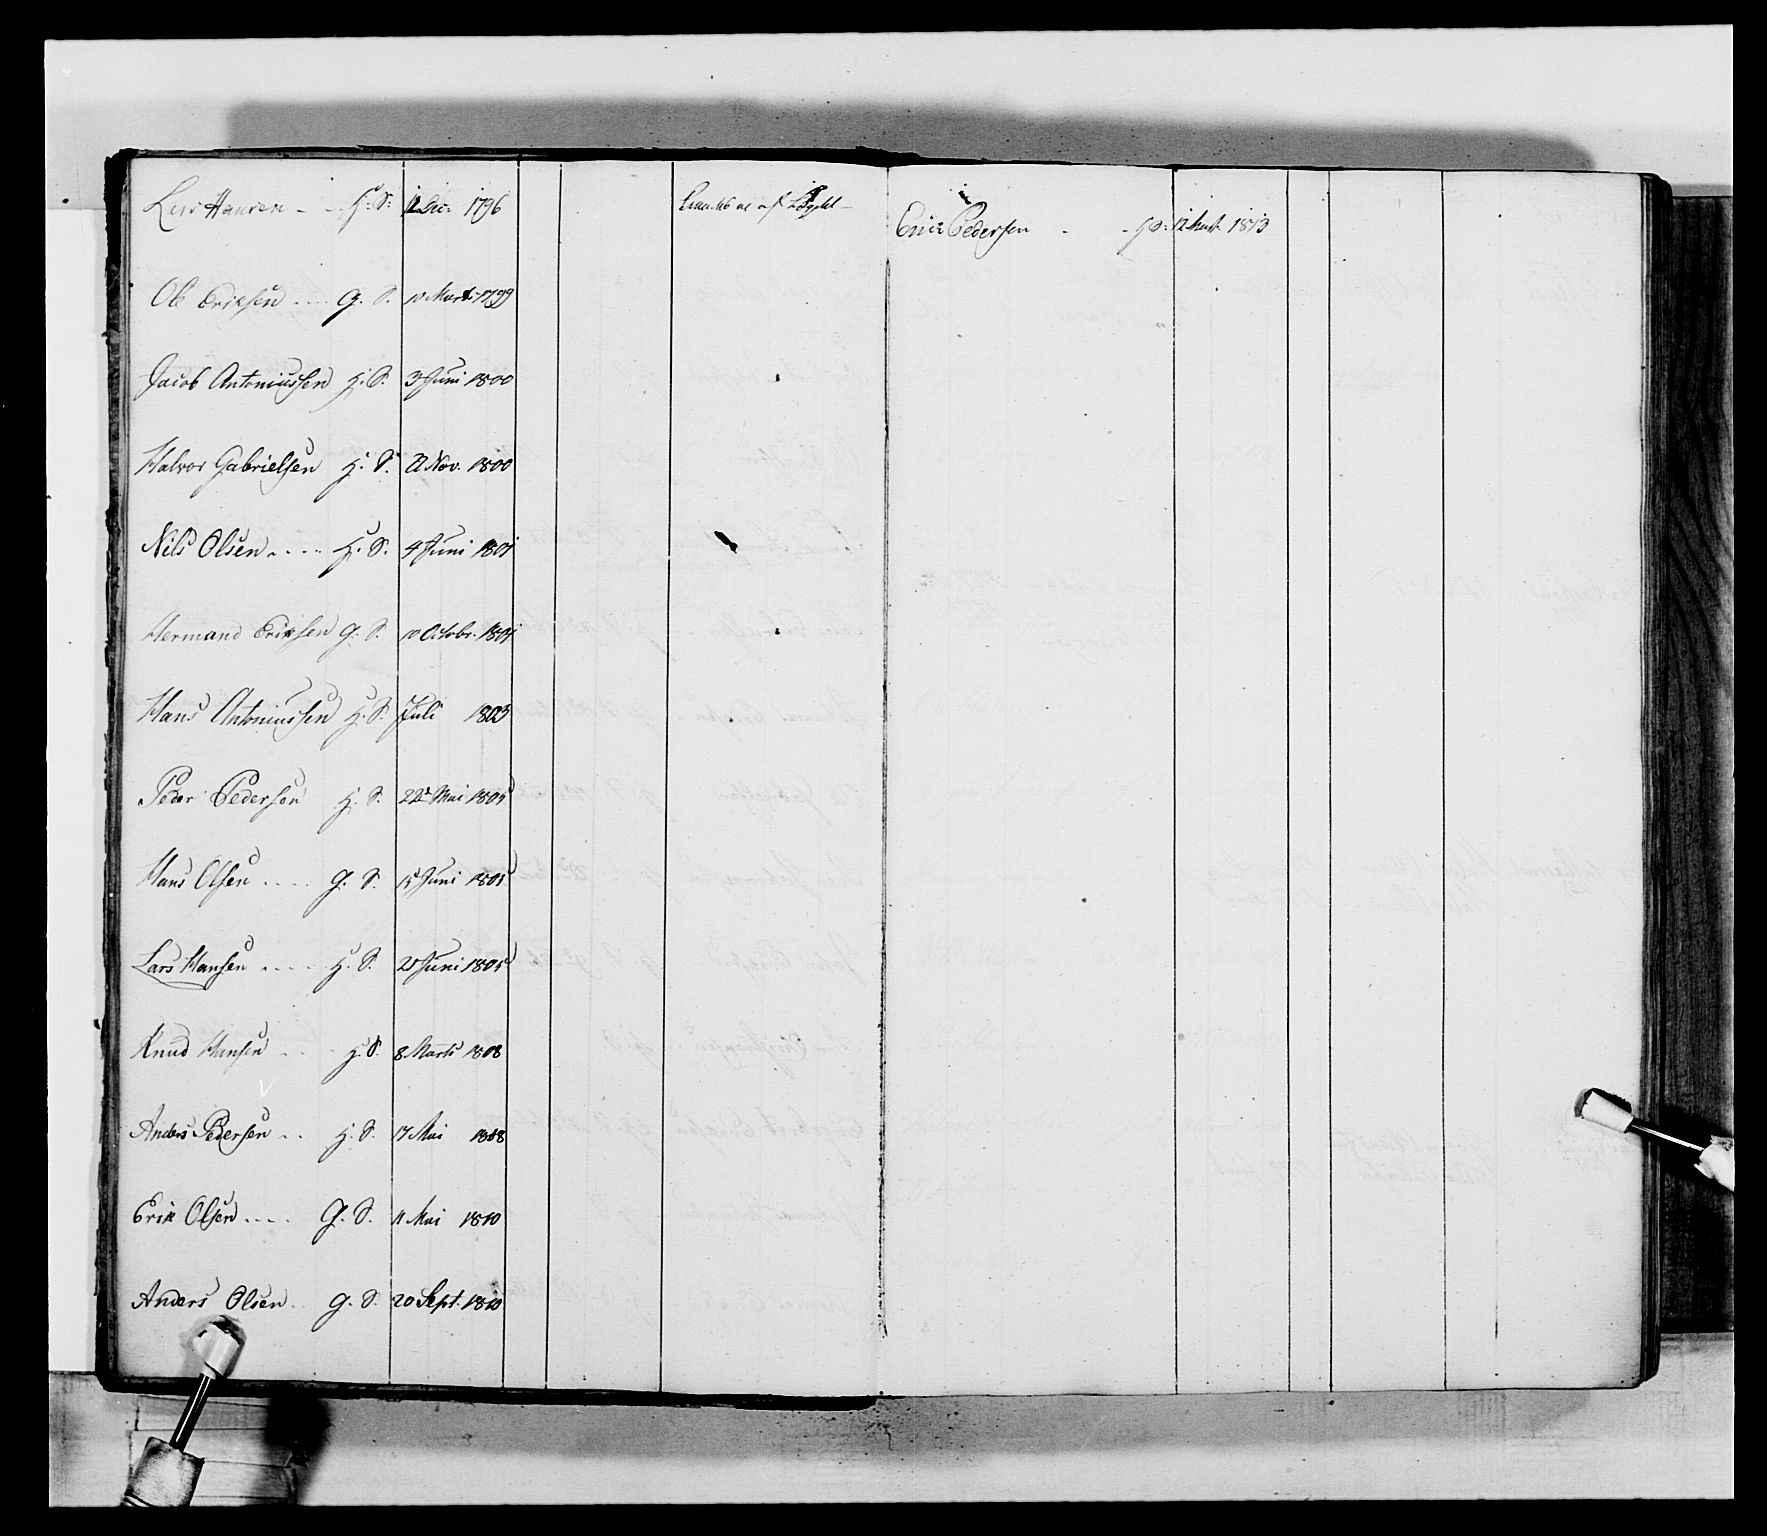 Lars Hansen - - H. S. 12 Dec: 1796
Ole Eriksen .... G. S. 10 Marts 1799
Jacob Antoniussen H. S. 3 Juni 1800
Halvor Gabrielsen H. S. 22 Nov. 1800
Nils Olsen ..... H. S. 4 Juni 1801
Hermand Eriksen G. S. 10 Octobr. 1801
Hans Antoniussen H. S. Juli 1803
Peder Pedersen H. S. 22de Mai 1805
Hans Olsen .... G. S. 15 Juni 1805
Lars Hansen .... H. S. 20 Juni 1805
Knud Hansen ... H. S. 8 Marts 1808
Anders Pedersen .. H. S. 17 Mai 1808
Erik Olsen .... G. S. 11 Mai 1810
Anders Olsen .. G. S. 20 Sept. 1810
Pedersen - - 12 1813